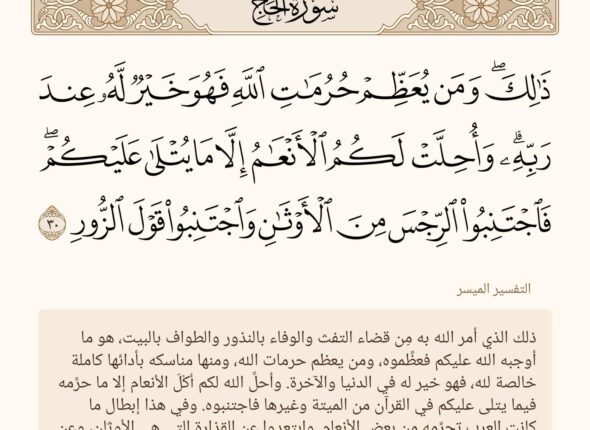 سُورَةُ الحَجِّ
ذَٰلِكَۖ وَمَن يُعَظِّمۡ حُرُمَٰتِ ٱللَّهِ فَهُوَ خَيۡرٞ لَّهُۥ عِندَ
رَبِّهِۦۗ وَأُحِلَّتۡ لَكُمُ ٱلۡأَنۡعَٰمُ إِلَّا مَا يُتۡلَىٰ عَلَيۡكُمۡۖ
فَٱجۡتَنِبُواْ ٱلرِّجۡسَ مِنَ ٱلۡأَوۡثَٰنِ وَٱجۡتَنِبُواْ قَوۡلَ ٱلزُّورِ ٣٠
التفسير الميسر
ذلك الذي أمر الله به مِن قضاء التفث والوفاء بالنذور والطواف بالبيت، هو ما
أوجبه الله عليكم فعظِّموه، ومن يعظم حرمات الله، ومنها مناسكه بأدائها كاملة
خالصة لله، فهو خير له في الدنيا والآخرة. وأحلَّ الله لكم أكْلَ الأنعام إلا ما حرَّمه
فيما يتلى عليكم في القرآن من الميتة وغيرها فاجتنبوه. وفي هذا إبطال ما
كانت العرب تحرِّمه من بعض الأنعام، وابتعدوا عن القذارة التي هي الأوثان، وعن